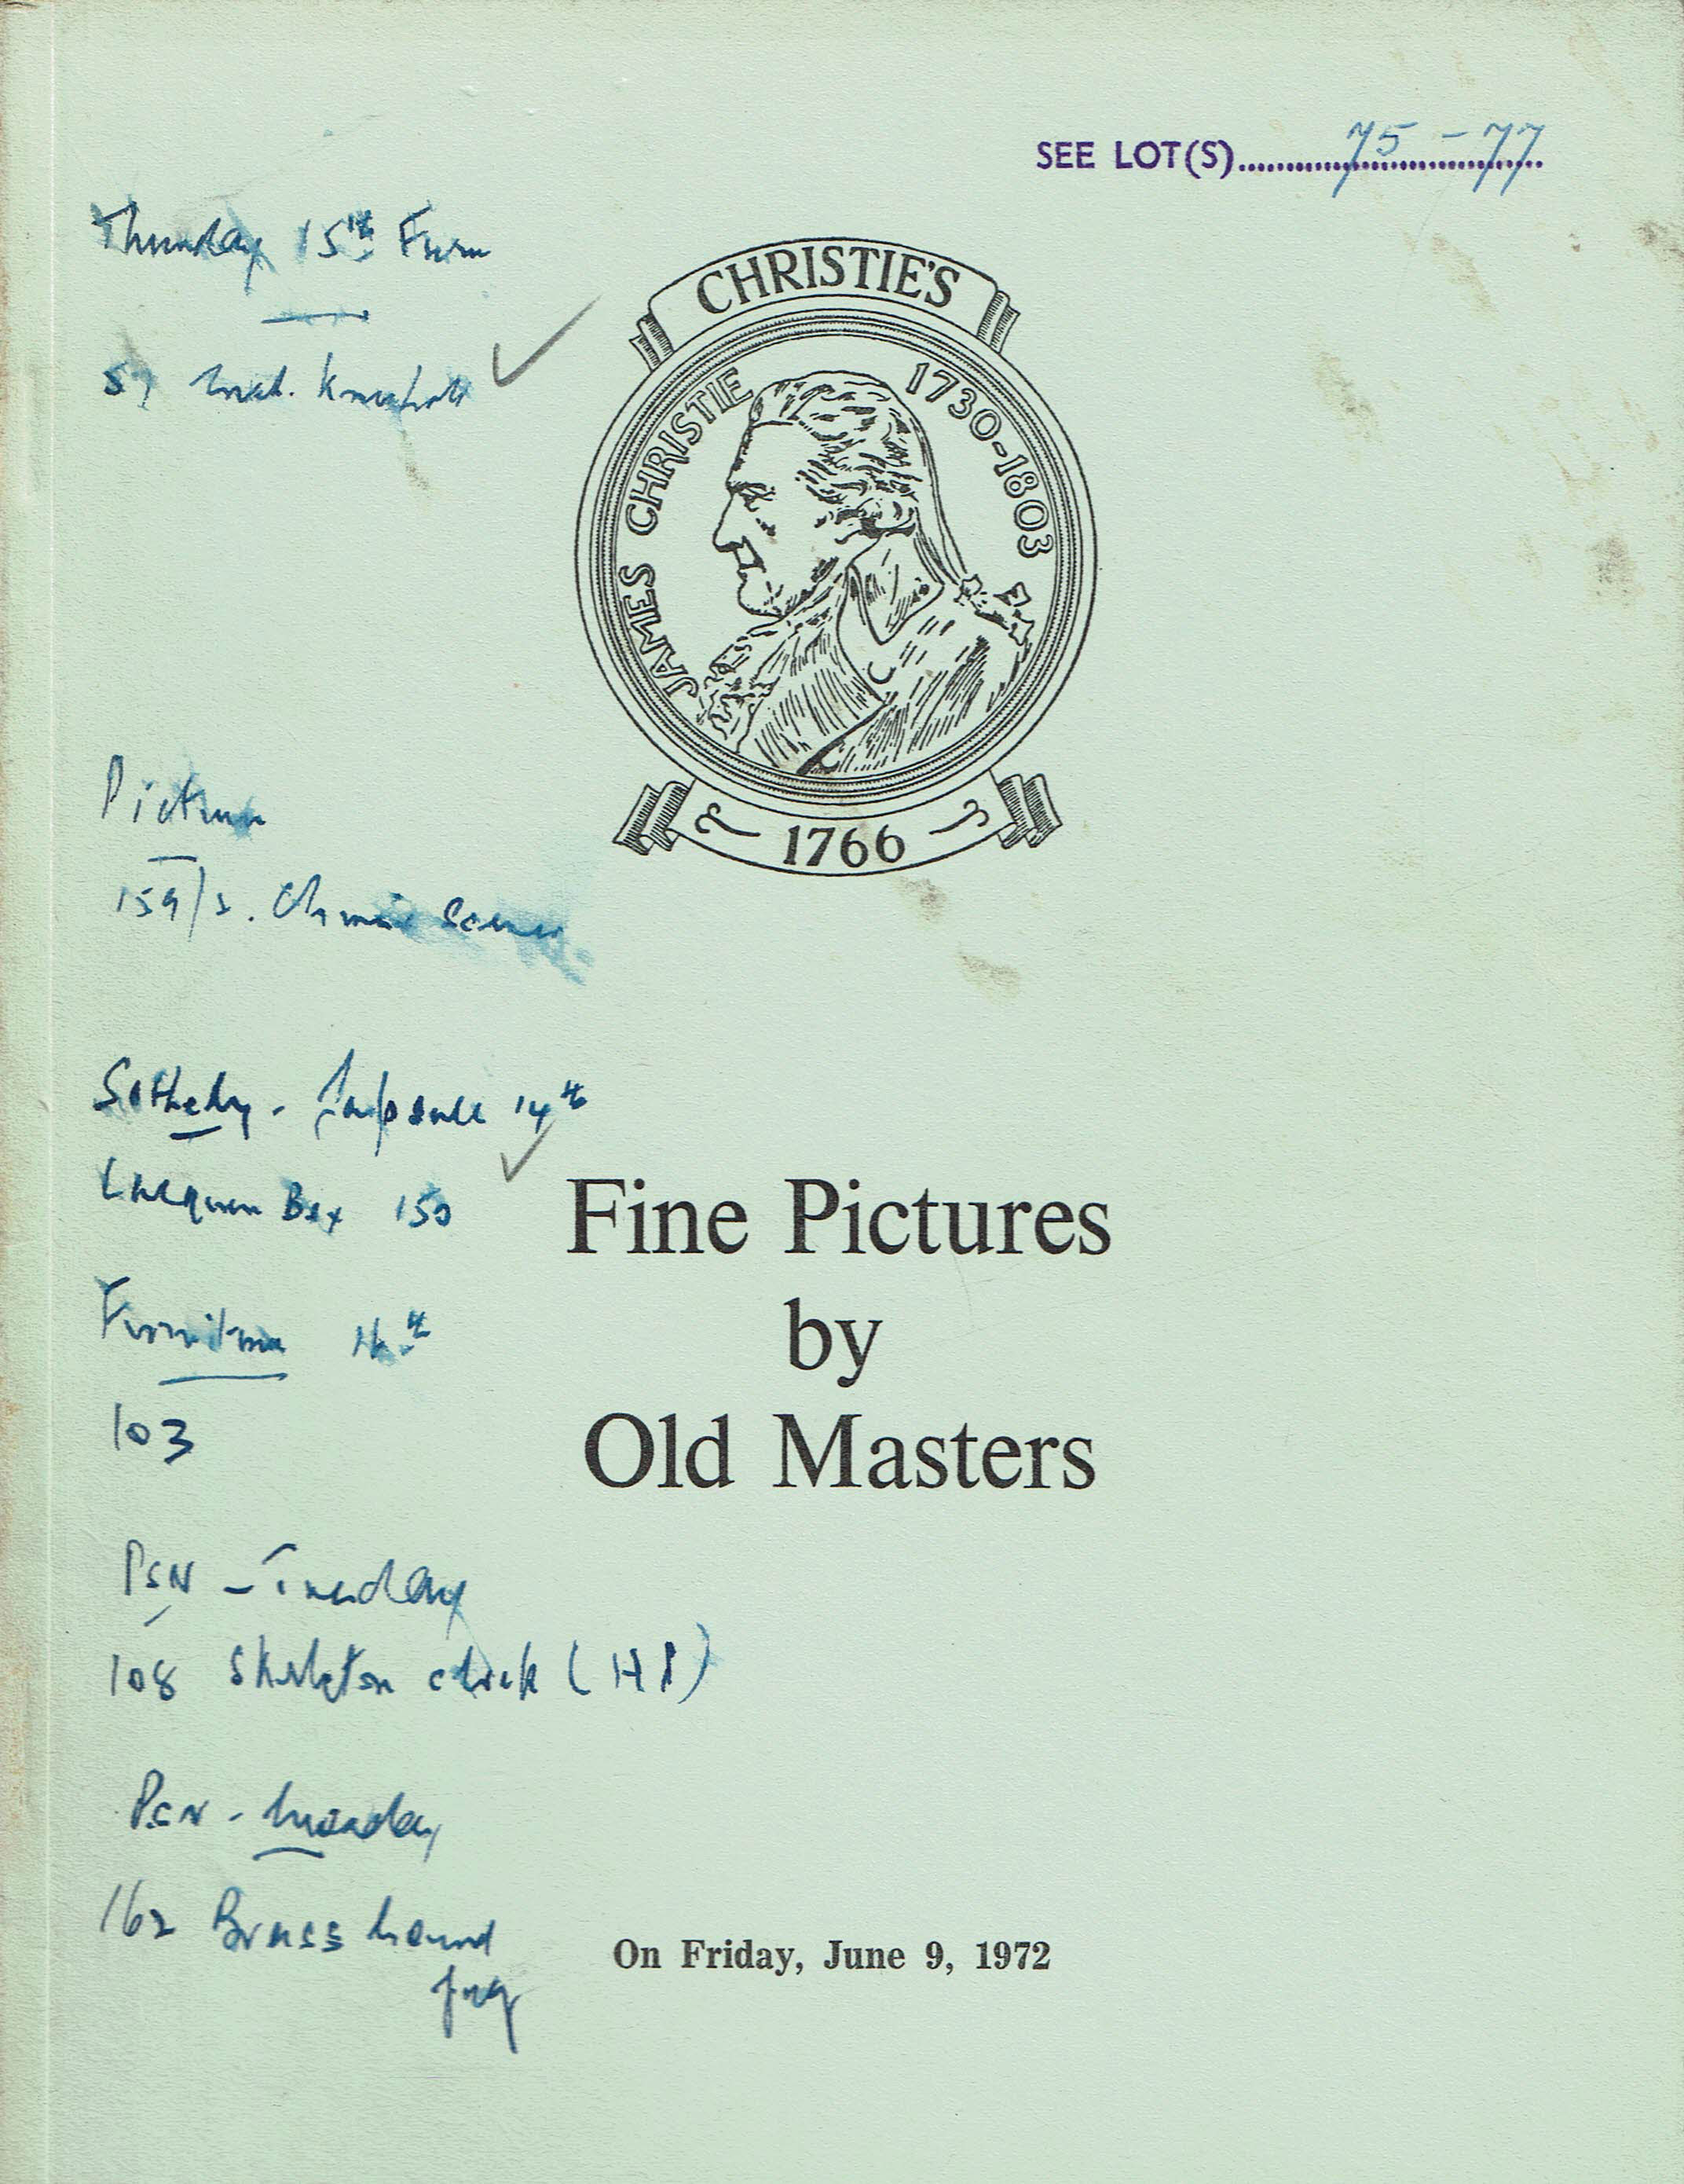 SEE LOT(S) 75 - 77
Thursday 15th Furn
CHRISTIE'S
JAMES CHRISTIE 1730-1803
1766
Pictures
159/2. Chinese Scenes
Sotheby - Japanese 14th
Lacquer Box 150
Fine Pictures
by
Old Masters
Furniture 16th
103
PSN - Tuesday
108 Skeleton clock (HP)
PSN -
162 Brass bound
jug
On Friday, June 9, 1972